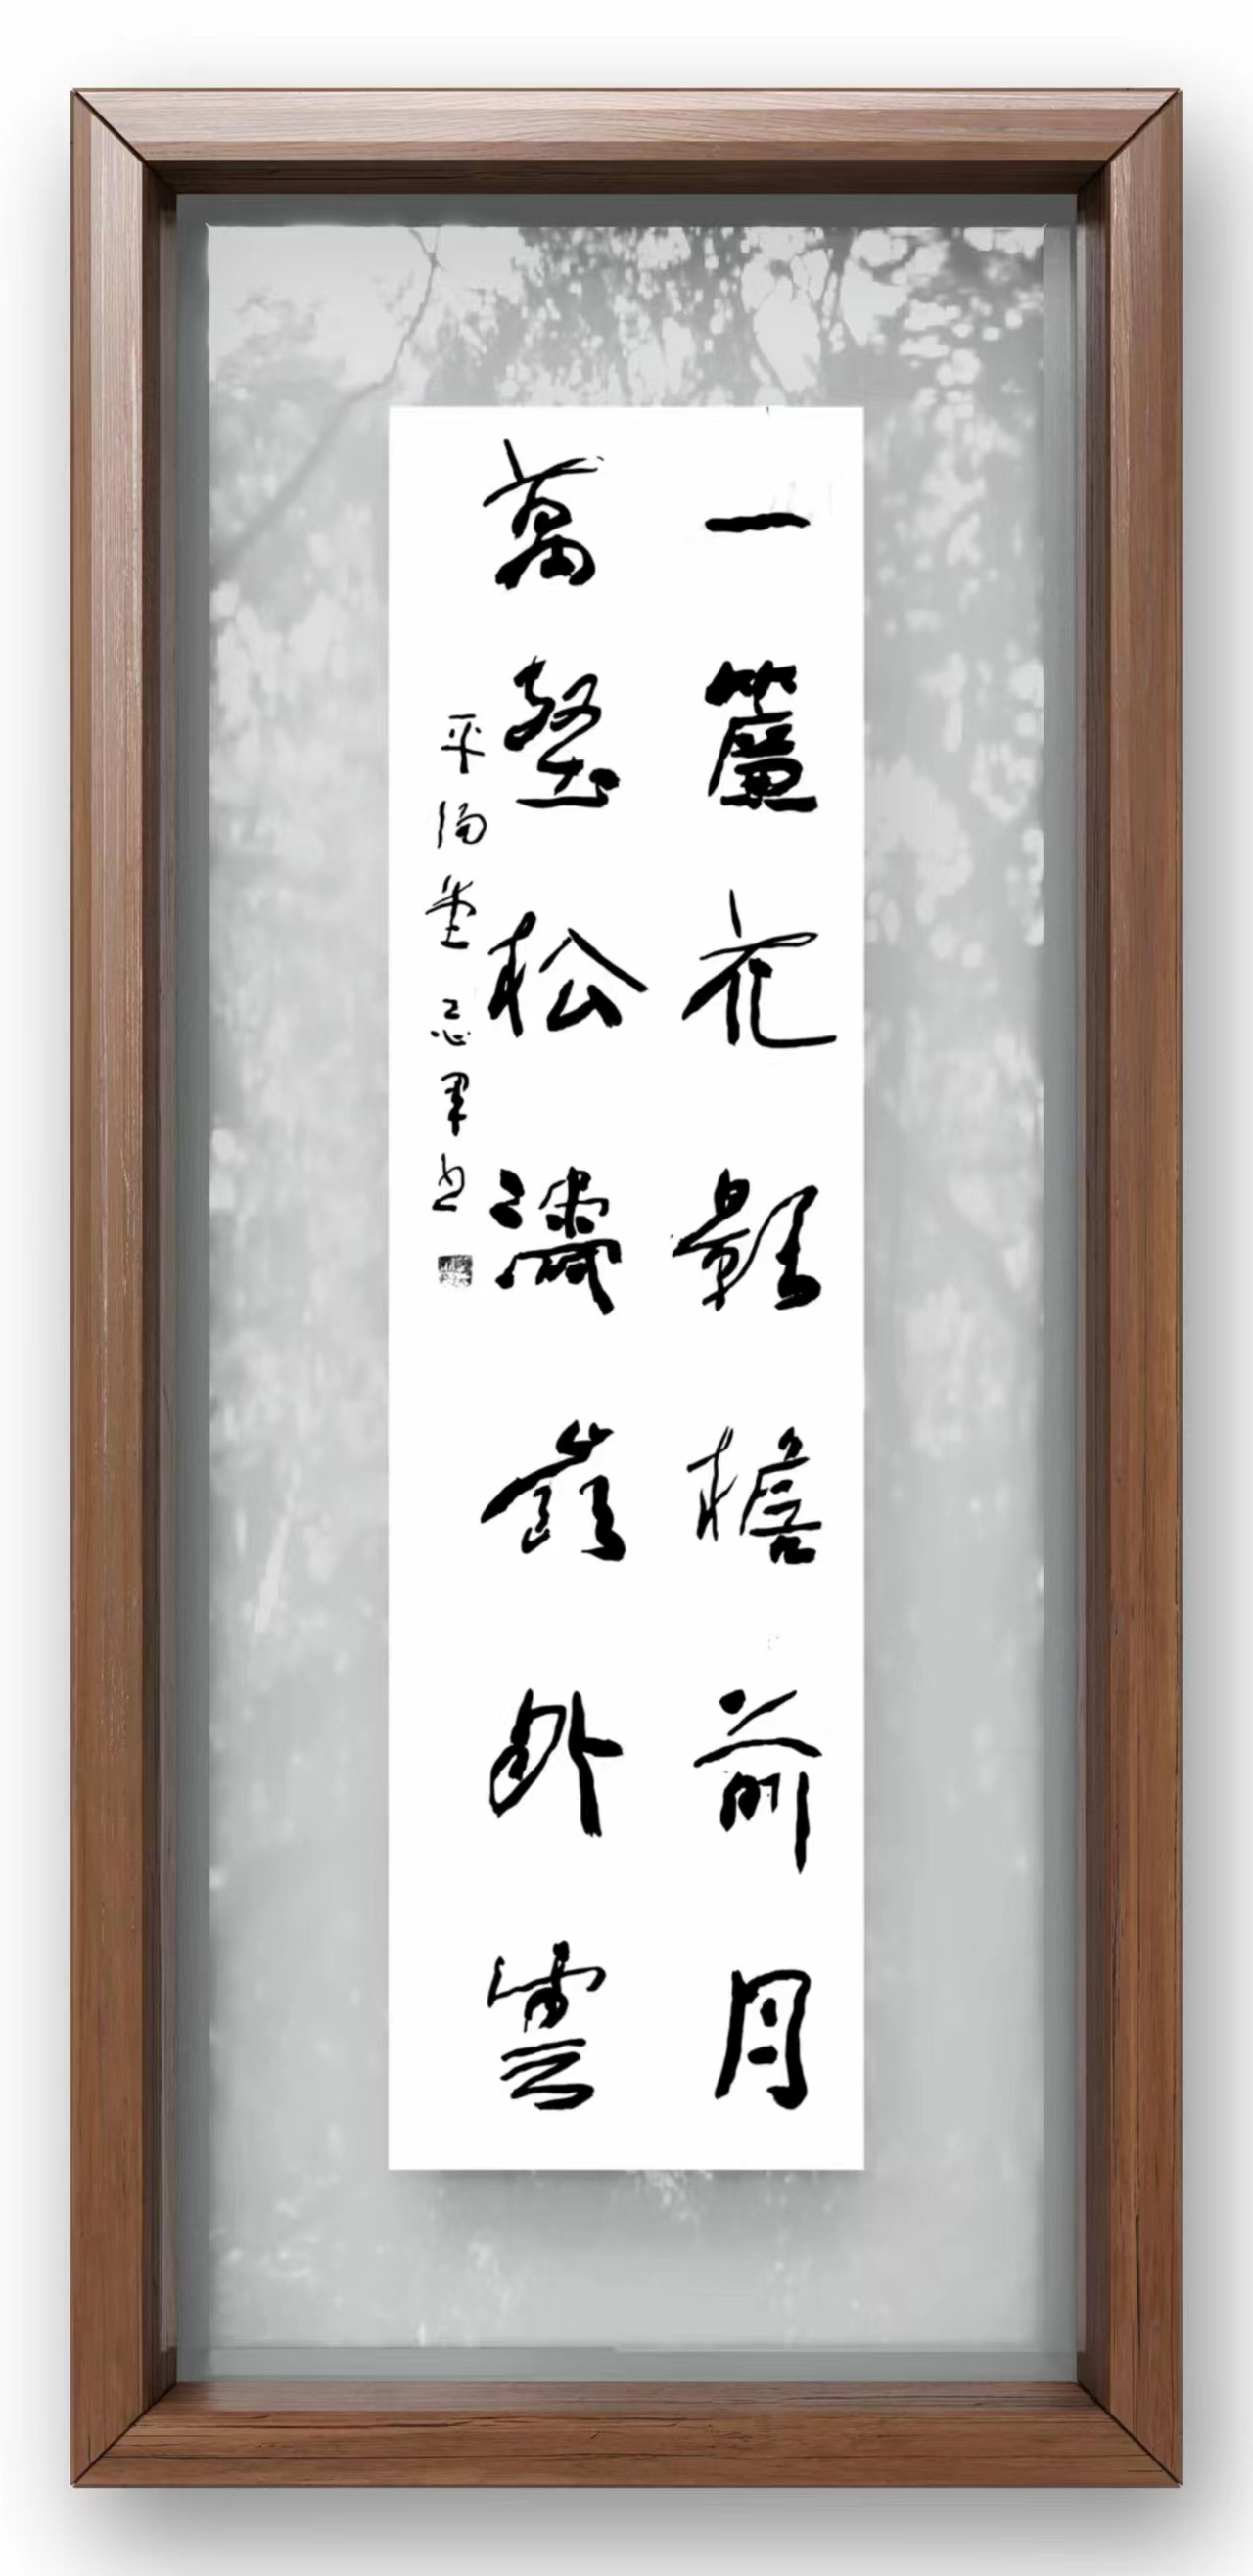 一簾花影檐前月
萬壑松濤嶺外雲
平陽堂忌軍書